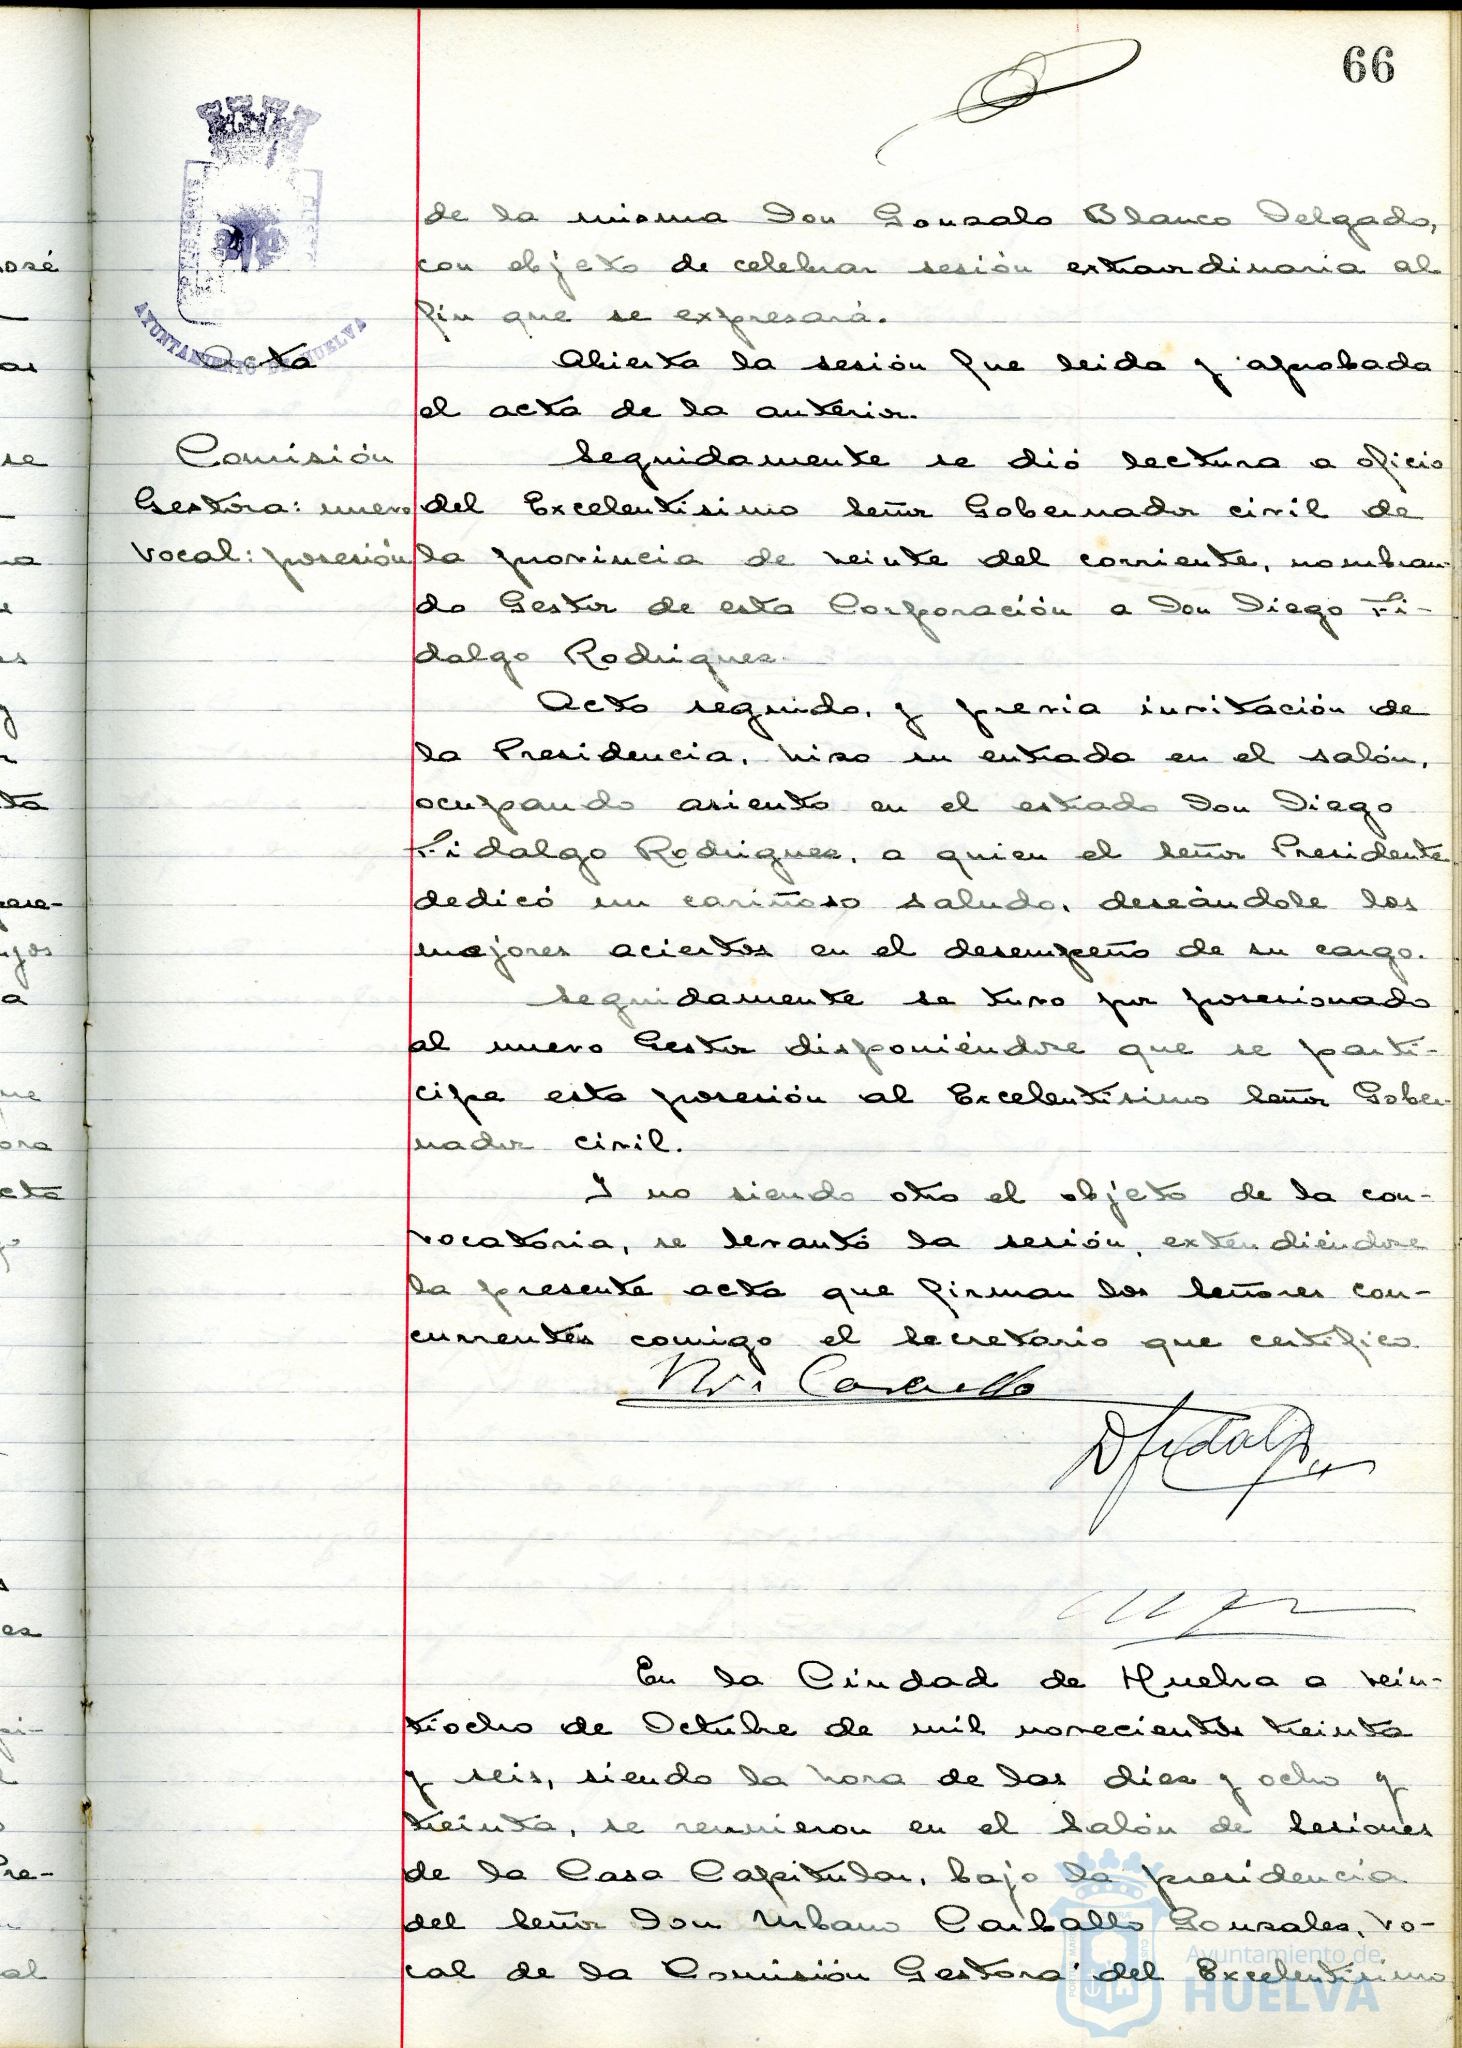 66
de la misma Don Gonzalo Blanco Delgado,
con objeto de celebrar sesión extraordinaria al
fin que se expresará.
Acta
AYUNTAMIENTO DE HUELVA
Abierta la sesión fue leida y aprobada
el acta de la anterior.
Comisión
Gestora: nuevo
vocal: posesión
Seguidamente se dió lectura a oficio
del Excelentísimo Señor Gobernador civil de
la provincia de veinte del corriente, nombran-
do Gestor de esta Corporación a Don Diego Fi-
dalgo Rodriguez.
Acto seguido, y previa invitación de
la Presidencia, hizo su entrada en el salón,
ocupando asiento en el estrado Don Diego
Fidalgo Rodriguez, a quien el Señor Presidente
dedicó un cariñoso saludo, deseándole los
mejores aciertos en el desempeño de su cargo.
Seguidamente se tuvo por posesionado
al nuevo Gestor disponiéndose que se parti-
cipe esta posesión al Excelentísimo Señor Gober-
nador civil.
Y no siendo otro el objeto de la con-
vocatoria, se levantó la sesión, extendiéndose
la presente acta que firman los Señores con-
currentes conmigo el Secretario que certifico
D Fidalgo
En la Ciudad de Huelva a vein-
tiocho de Octubre de mil novecientos treinta
y seis, siendo la hora de las diez y ocho y
treinta, se reunieron en el Salón de Sesiones
de la Casa Capitular, bajo la presidencia
del Señor Don Urbano Carballo Gonzales, Vo-
cal de la Comisión Gestora del Excelentísimo
Ayuntamiento de
HUELVA